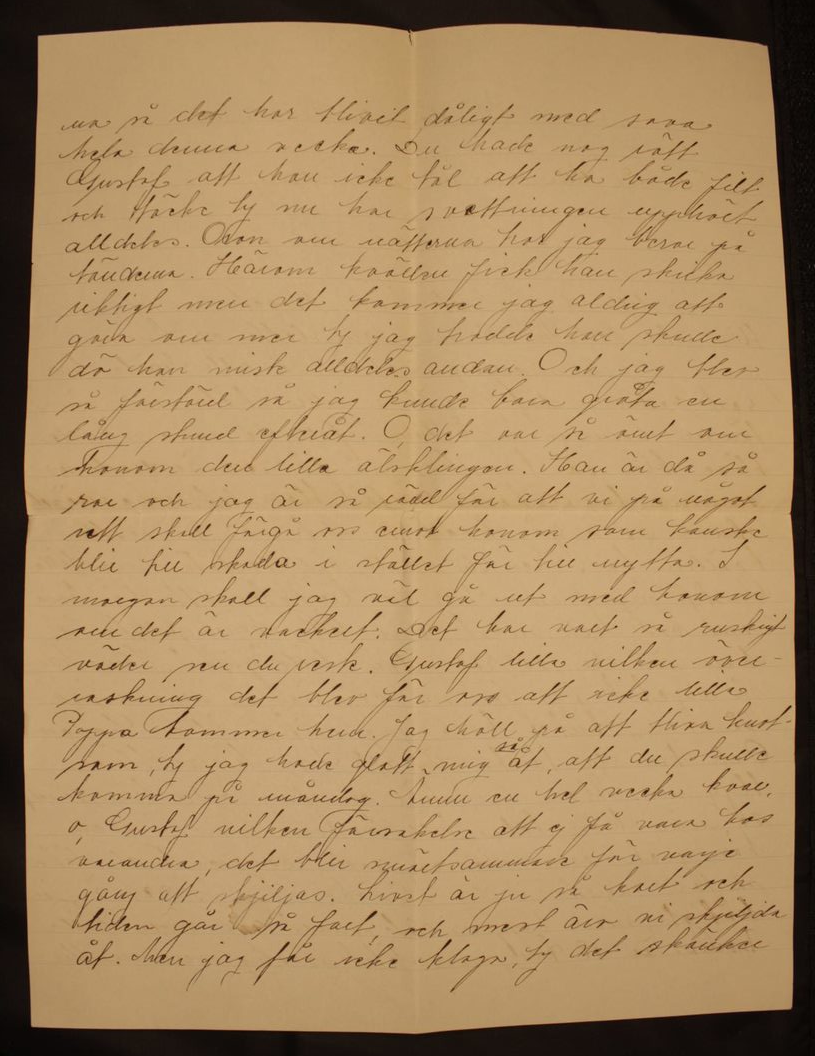 na så det har blivit dåligt med sova
hela denna vecka. Du hade nog rätt
Gustaf att han icke tål att ha både filt
och täcke ty nu har svettningen upphört
alldeles. Oron om nätterna har jag beror på
tänderna. Härom kvällen fick han skrika
riktigt men det kommer jag aldrig att
göra om mer ty jag trodde han skulle
dö han miste alldeles andan. Och jag blev
så förstörd så jag kunde bara gråta en
lång stund efteråt. O, det var så ömt om
honom den lilla älsklingen. Han är då så
rar och jag är så rädd för att vi på något
sätt skall förgå oss emot honom som kanske
blir till skada i stället för till nytta. I
morgon skall jag väl gå ut med honom
om det är vackert. Det har varit så ruskigt
väder sen du reste. Gustaf lilla vilken över-
raskning det blev för oss att icke lilla
Pappa kommer hem. Jag höll på att bliva tvat-
sam, ty jag hade glatt mig så åt, att du skulle
komma på måndag. Ännu en hel vecka kvar,
o, Gustaf vilken försakelse att ej få vara hos
varandra, det blir smärtsammare för varje
gång att skiljas. Livet är ju så kort och
tiden går så fort, och mest äro vi skiljda
åt. Men jag får icke klaga, ty det skänker